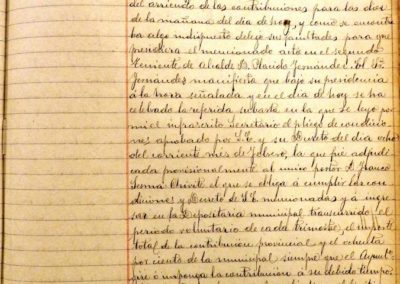 del arriendo de las contribuciones para las diez
de la mañana del dia de hoy, y como se encontra
ba algo indispuesto delegó sus facultades para que
presidiera el mencionado acto en el segundo
Teniente de Alcalde D. Placido Fernández. El Sr.
Fernández manifiesta que bajo su presidencia
á la hora señalada y en el dia de hoy se ha
celebado la referida subasta en la que se leyó por
mi el infrascrito Secretario el pliego de condicio
nes aprobado por S.E. y su Decreto del dia ocho
del corriente mes de Febrero, la que fué adjudi
cada provisionalmente al unico postor D.
el que se obliga á cumplir las con
diciones y Decreto de S.E. mencionadas y á ingre
sar en la Depositaria municipal transcurrido el
periodo voluntario de cada trimestre, el importe
total de la contribución provincial y el ochenta
por ciento de la municipal siempre que el Ayunto
gire ó imponga la contribución á su debido tiempo